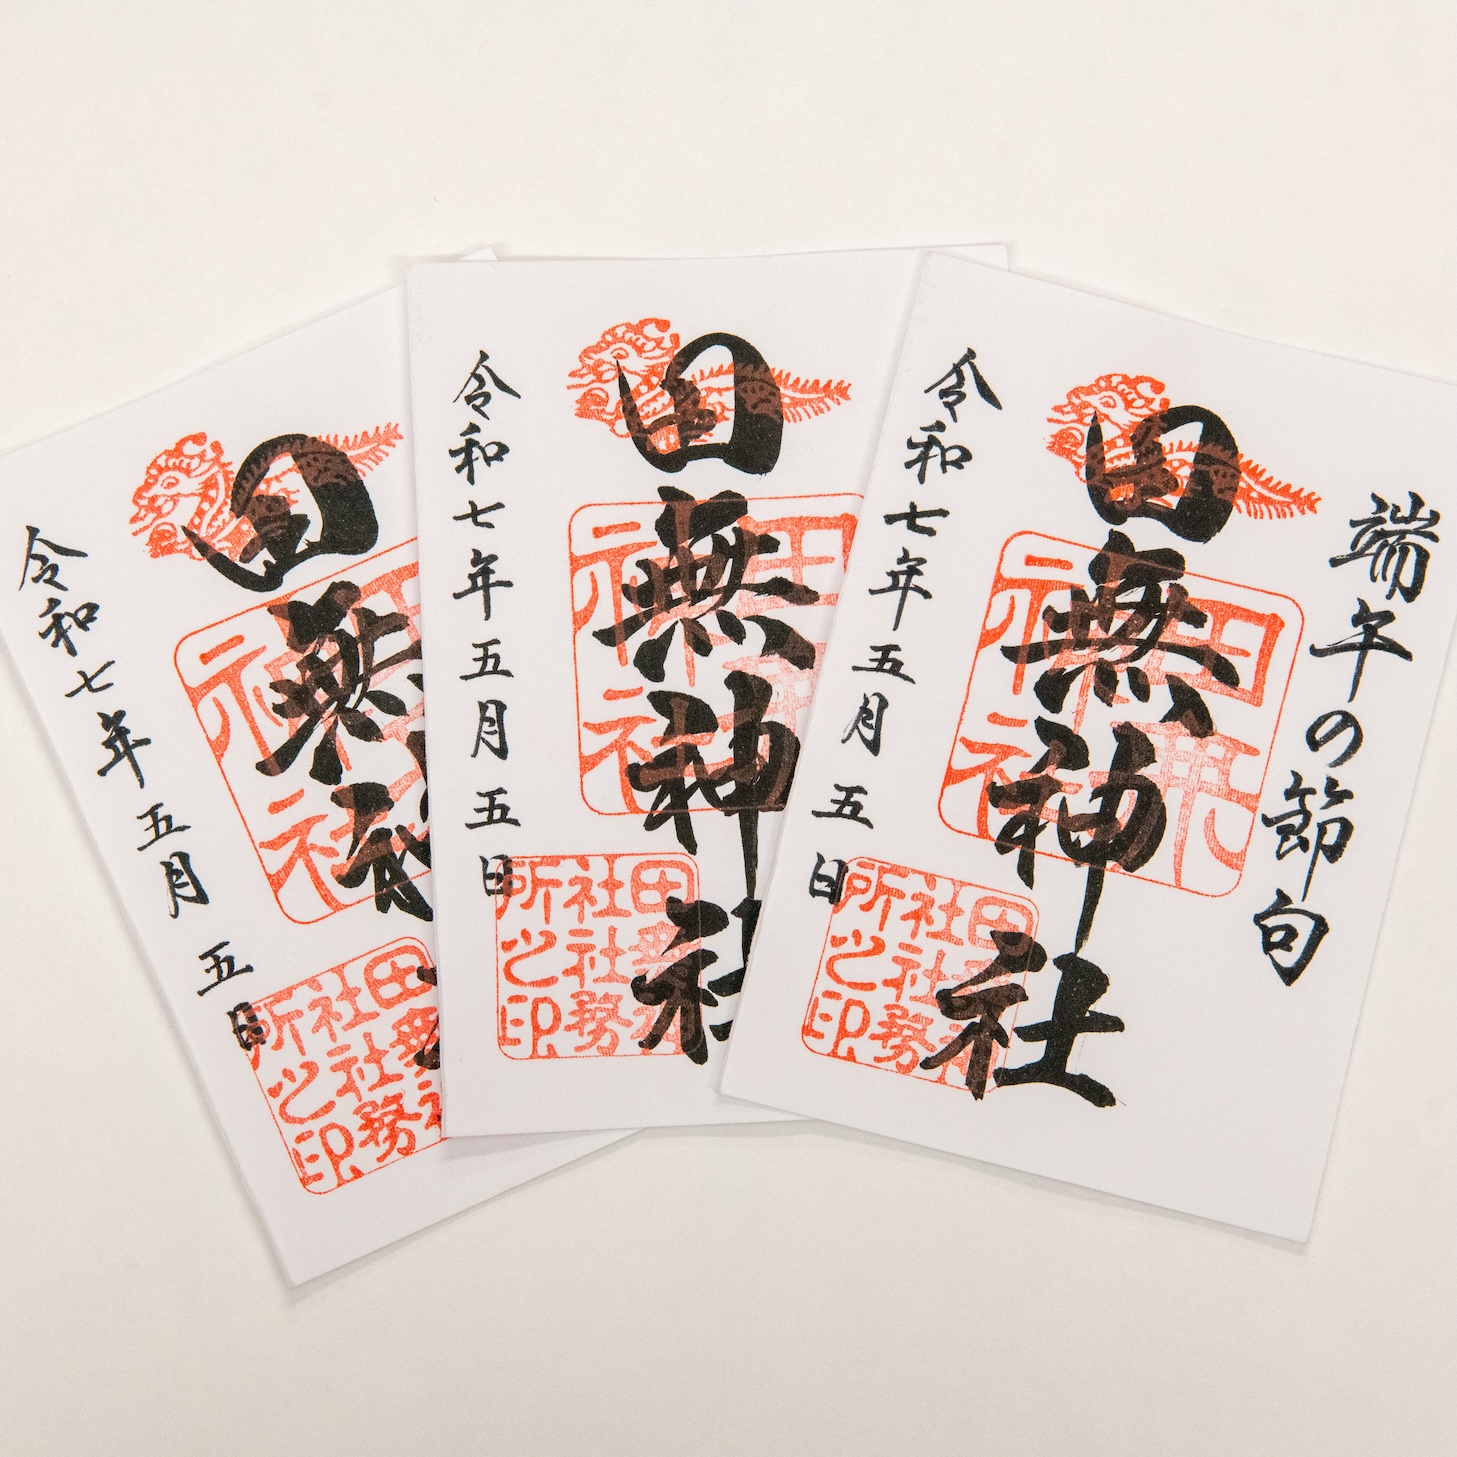 端午の節句
田無神社
田無
神社
田無神
社社務
所之印
令和七年五月五日
田無神社
田無
神社
田無神
社社務
所之印
令和七年五月五日
田無神
神社
田無神
社社務
所之印
令和七年五月五日